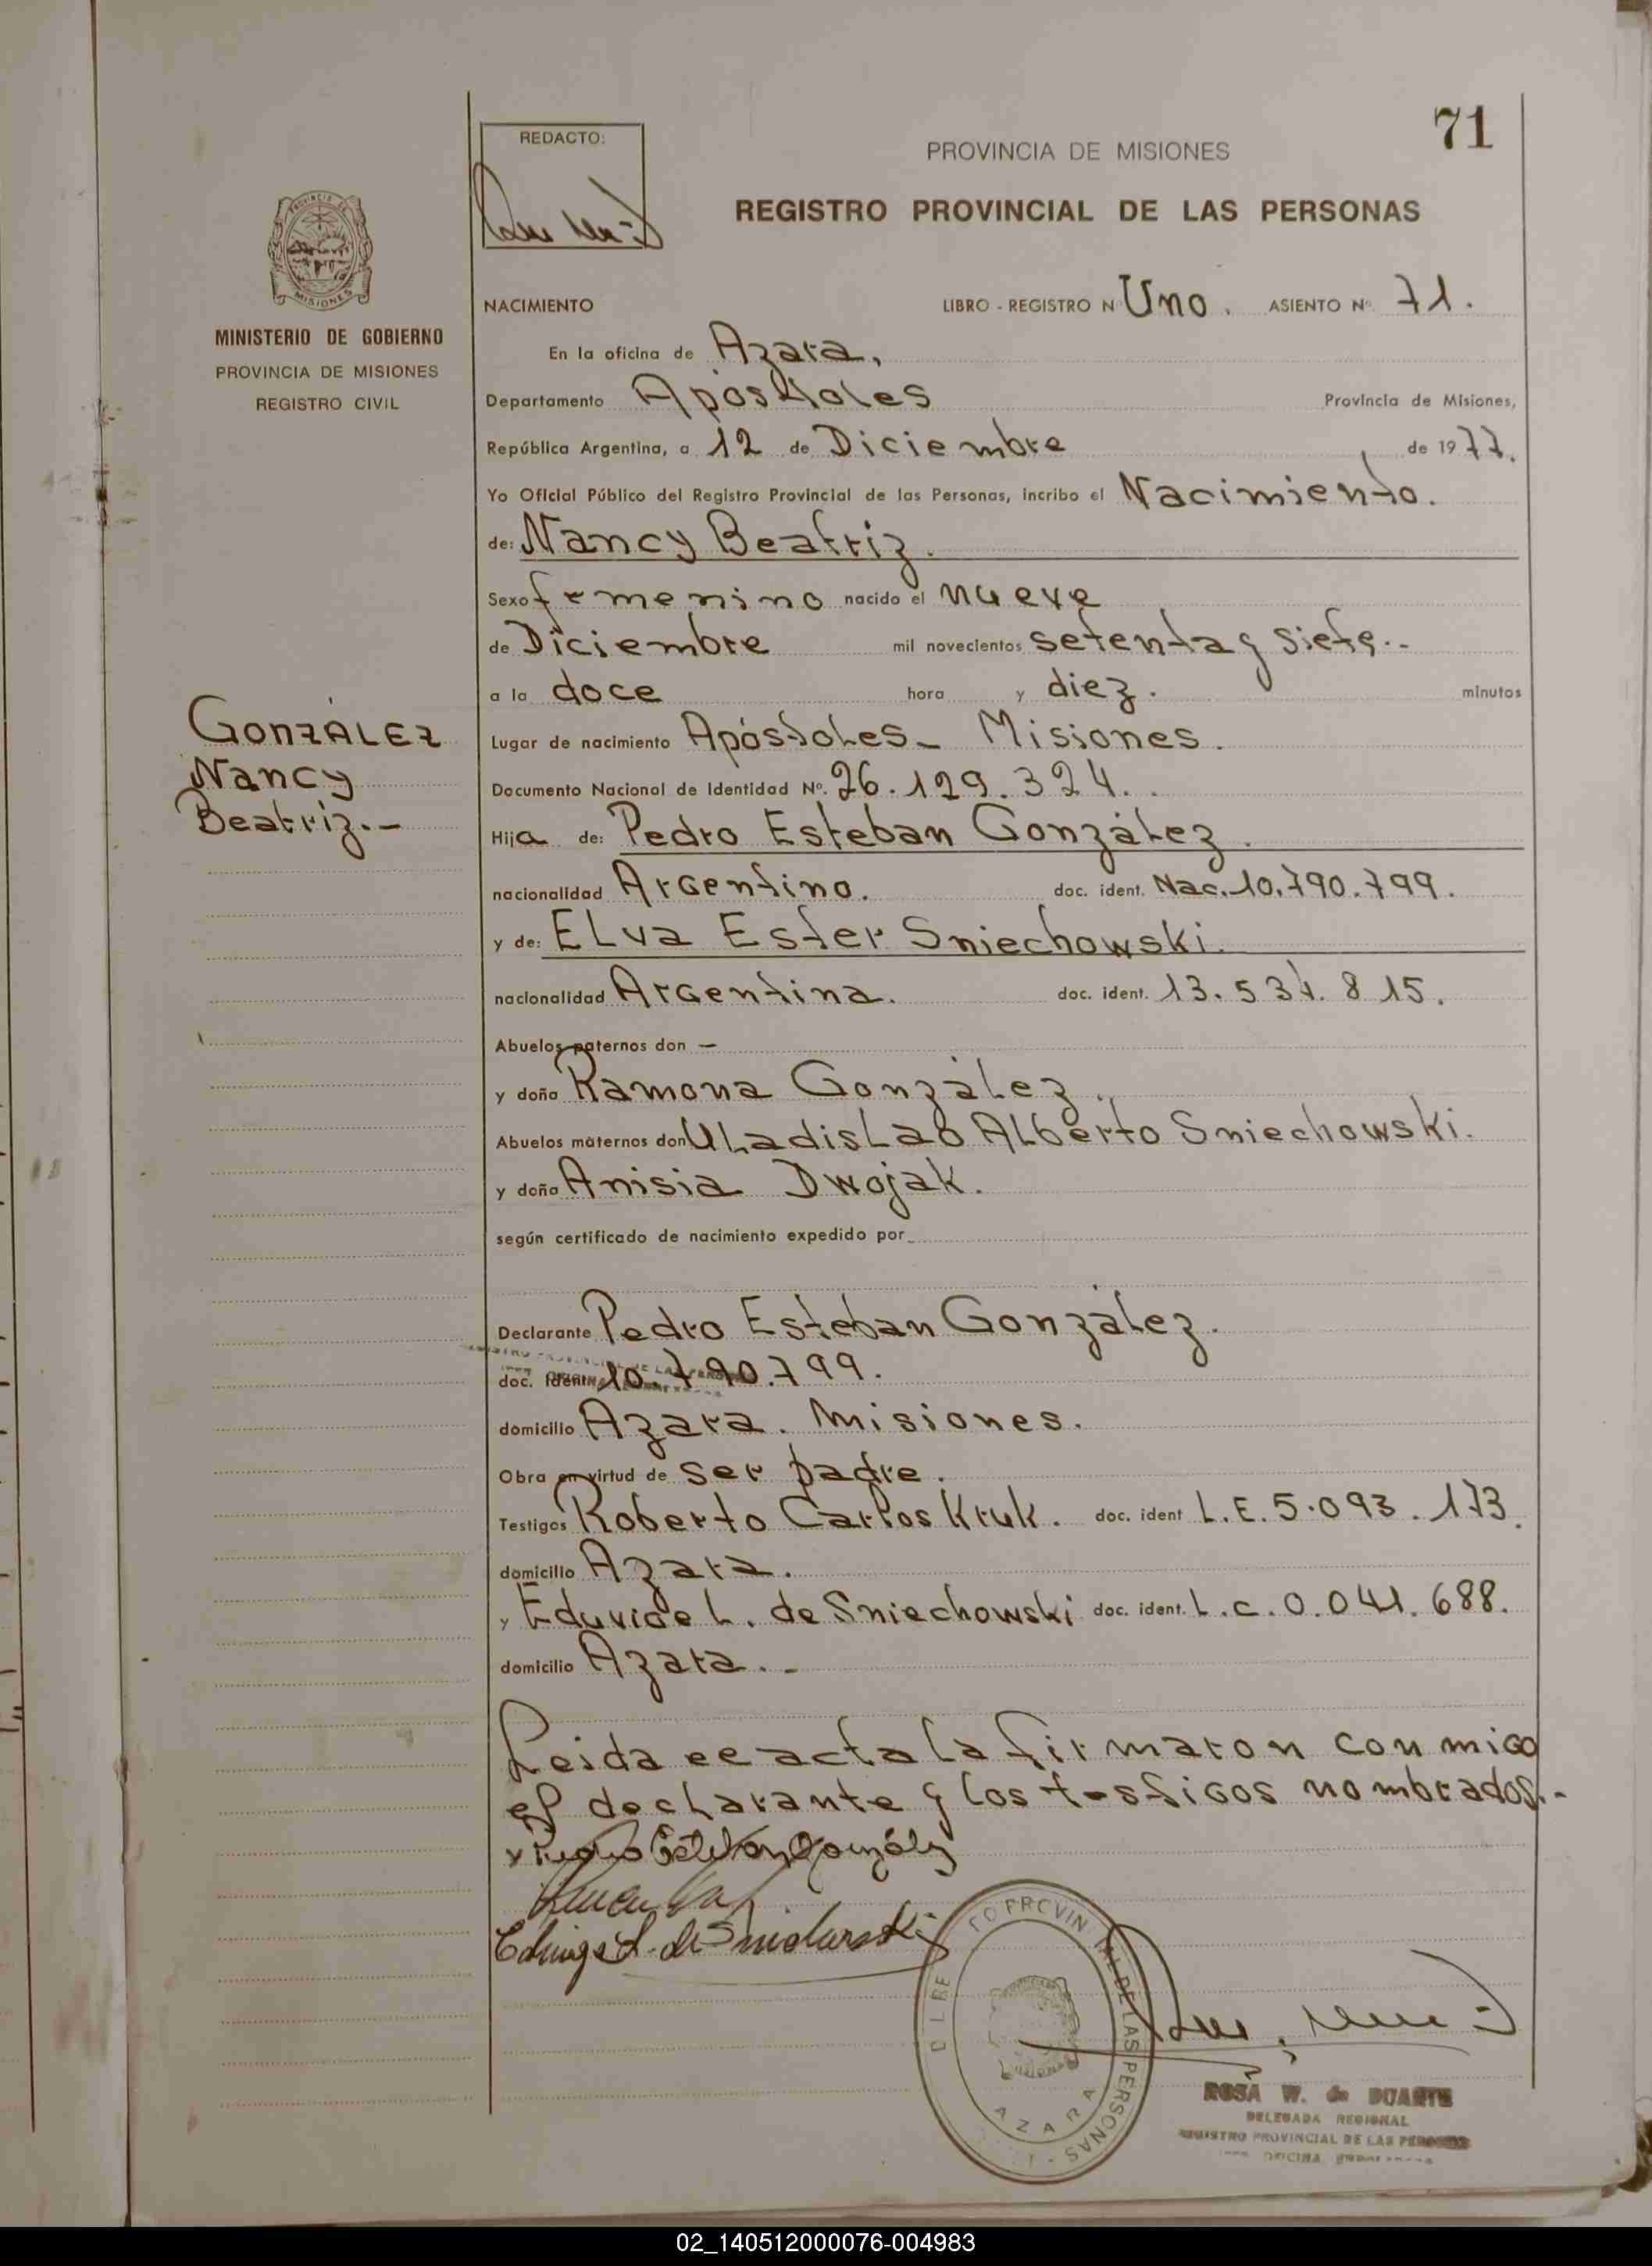 71
REDACTO:
PROVINCIA DE MISIONES
REGISTRO PROVINCIAL DE LAS PERSONAS
MISIONES
MINISTERIO DE GOBIERNO
PROVINCIA DE MISIONES
REGISTRO CIVIL
NACIMIENTO LIBRO - REGISTRO N Uno. ASIENTO Nº. 71.
En la oficina de Azara,
Departamento Apóstoles Provincia de Misiones,
República Argentina, a 12 de Diciembre de 1977.
Yo Oficial Público del Registro Provincial de las Personas, incribo el Nacimiento.
de: Nancy Beatriz.
Sexo femenino nacido el nueve
de Diciembre mil novecientos setenta y siete.-
a la doce hora y diez. minutos
GONZÁLEZ
Nancy
Beatriz.-
Lugar de nacimiento Apóstoles - Misiones.
Documento Nacional de Identidad Nº. 26.129.324.
Hija de: Pedro Esteban González.
nacionalidad Argentino. doc. ident. Nac. 10.790.799.
y de: Elva Ester Sniechowski.
nacionalidad Argentina. doc. ident. 13. 815.
Abuelos paternos don —
y doña Ramona González.
Abuelos maternos don Uladislao Alberto Sniechowski.
y doña Anisia Dwojak.
según certificado de nacimiento expedido por
Declarante Pedro Esteban González.
doc. ident. 10.790.799.
domicilio Azara. Misiones.
Obra en virtud de ser padre.
Testigos Roberto Carlos Kruk. doc. ident L.E. 5.093.173.
domicilio Azara.
y Eduvige L. de Sniechowski doc. ident. L.C. 0.041.688.
domicilio Azara.-
Leida ee acta la firmaron conmigo
el declarante y los testigos nombrados.-
Pedro Esteban González
Eduvige L. de Sniechowski
PROVINCIAL DE LAS PERSONAS
AZARA
ROSA W. de DUARTE
DELEGADA REGIONAL
REGISTRO PROVINCIAL DE LAS PERSONAS
OFICINA
02_140512000076-004983